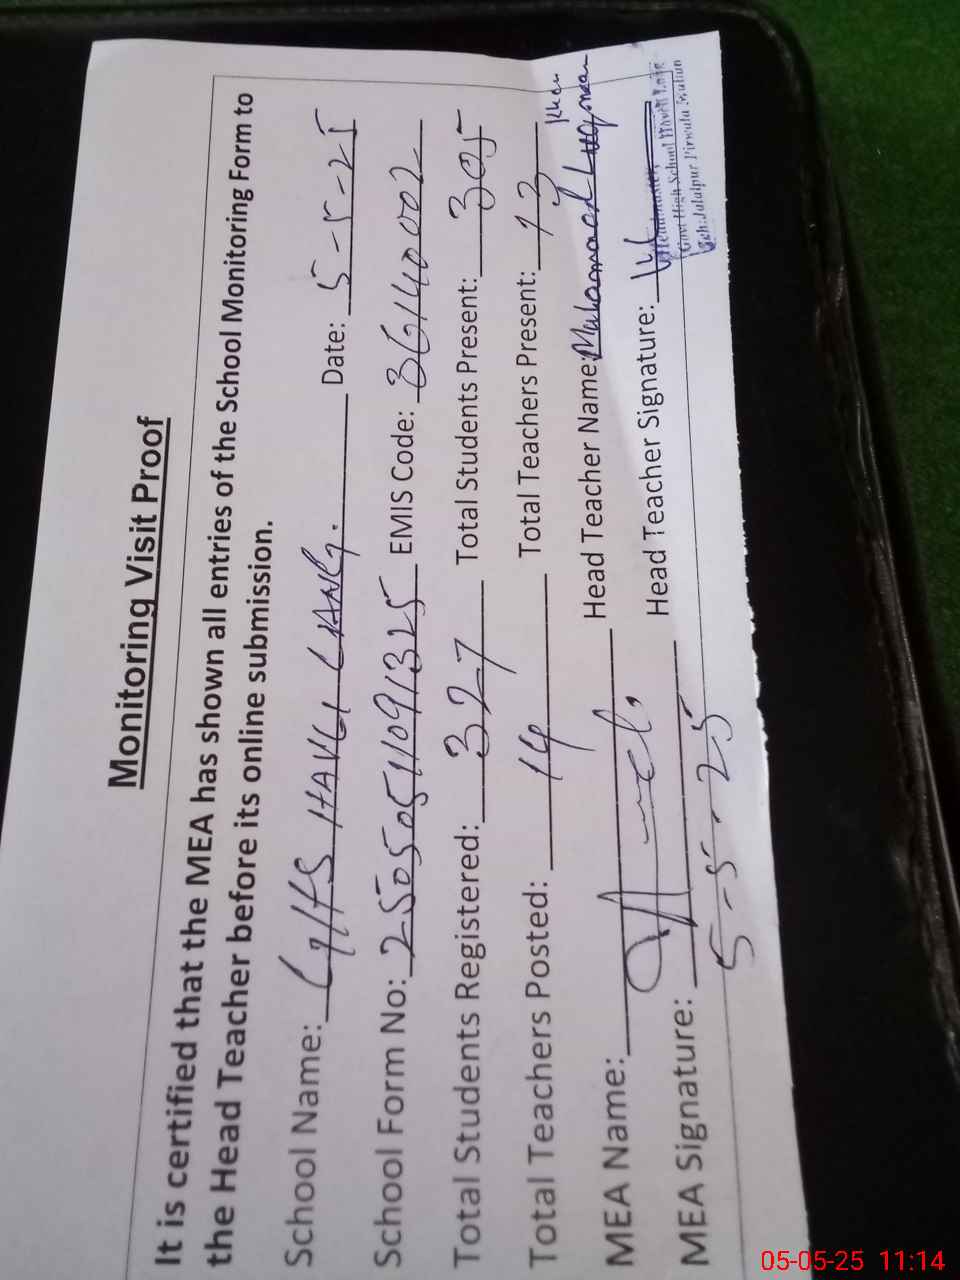 Monitoring Visit Proof
It is certified that the MEA has shown all entries of the School Monitoring Form to
the Head Teacher before its online submission.
School Name: GHS HAVELI LANG. Date: 5-5-25
School Form No: 25050511091325 EMIS Code: 36140002
Total Students Registered: 327 Total Students Present: 305
Total Teachers Posted: 14 Total Teachers Present: 13
MEA Name: Head Teacher Name: Muhammad Luqman Khan
MEA Signature: Head Teacher Signature:
5-5-25
Headmaster
Govt High School Haveli Lang
Teh: Jalalpur Pirwala Multan
05-05-25 11:14